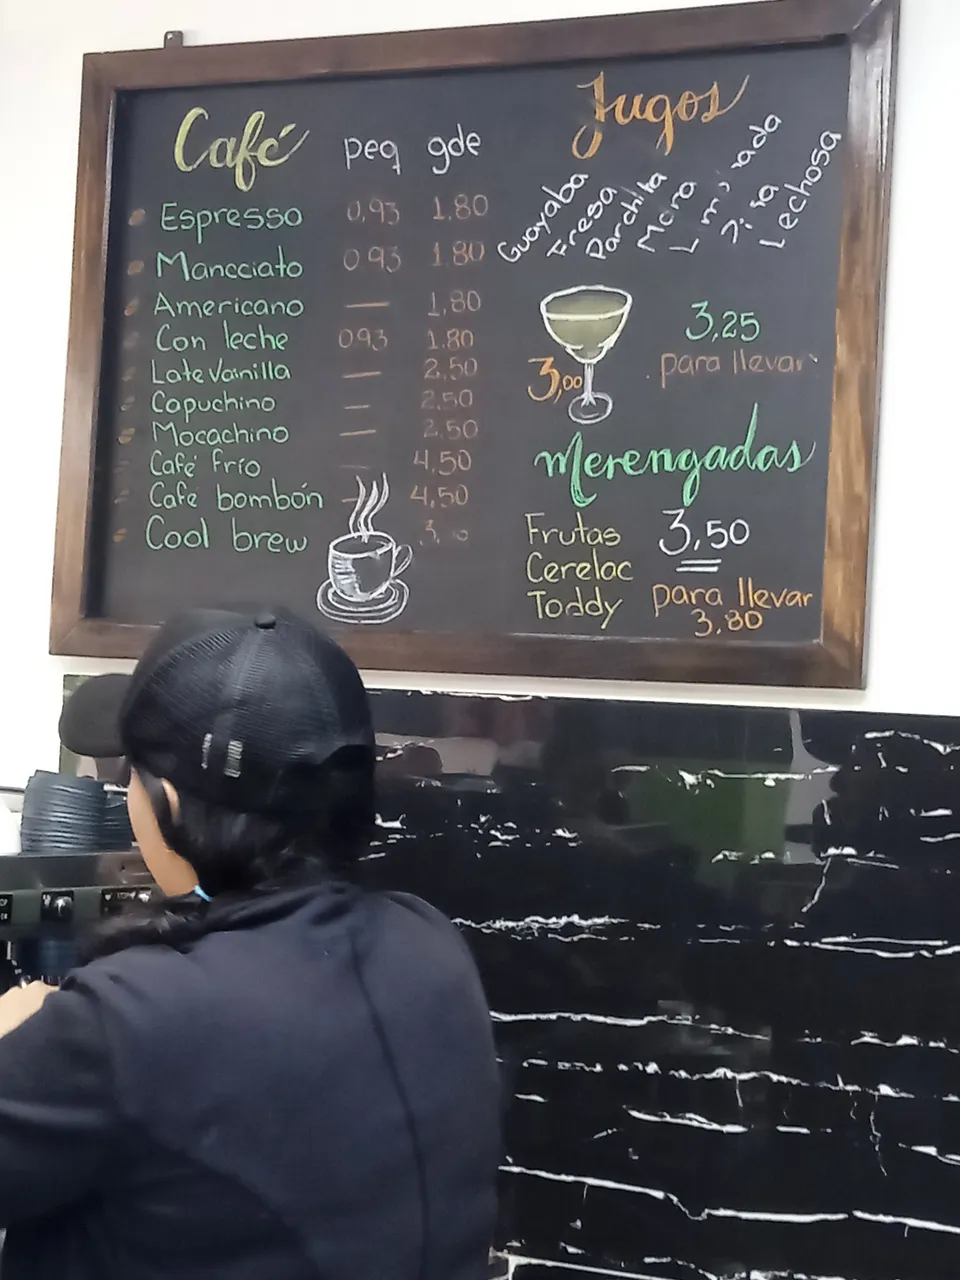 Café peq gde
Espresso 0,93 1.80
Mancciato 0.93 1.80
Americano — 1,80
Con leche 0.93 1.80
Late Vainilla — 2.50
Capuchino — 2.50
Mocachino — 2.50
Café frío — 4,50
Café bombón — 4,50
Cool brew
Jugos
Guayaba
Fresa
Parchita
Mora
Lechosa
3,00
3,25
para llevar
Merengadas
Frutas 3,50
Cerelac
Toddy para llevar
3.80